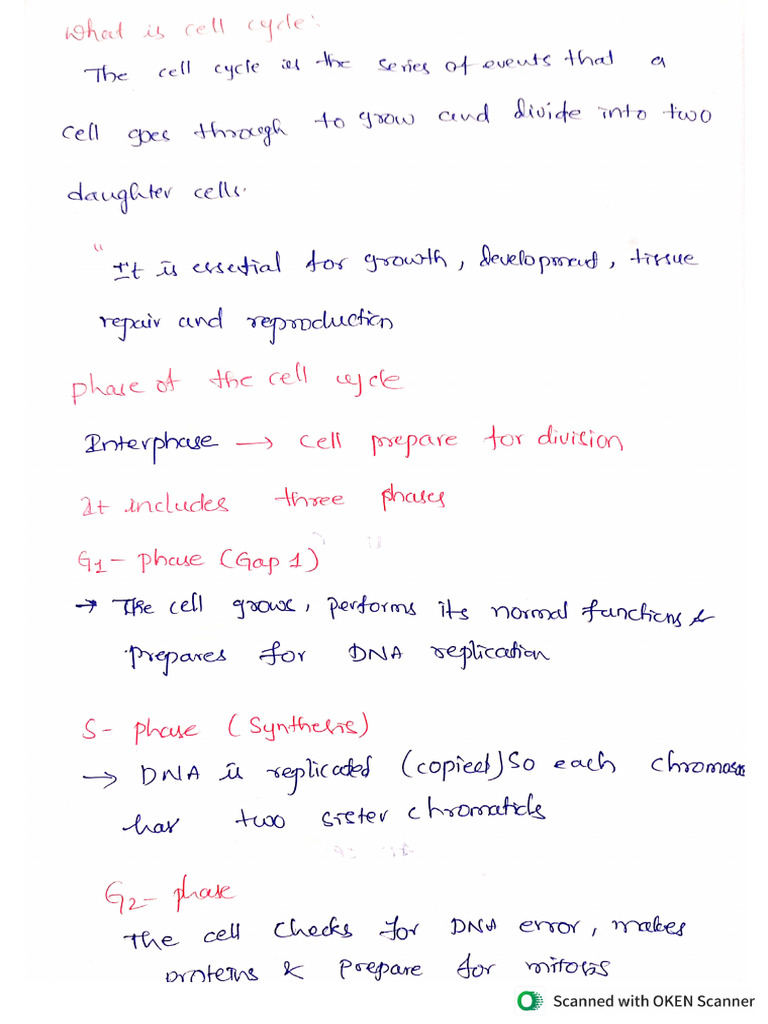 What is cell cycle:
The cell cycle is the series of events that a
cell goes through to grow and divide into two
daughter cells.
"It is essential for growth, development, tissue
repair and reproduction
phase of the cell cycle
Interphase → cell prepare for division
It includes three phases
G1 - phase (Gap 1)
→ The cell grows, performs its normal functions &
prepares for DNA replication
S - phase (Synthesis)
→ DNA is replicated (copied) So each chromosos
has two sister chromatids
G2 - phase
The cell checks for DNA error, makes
proteins & prepare for mitosis
Scanned with OKEN Scanner